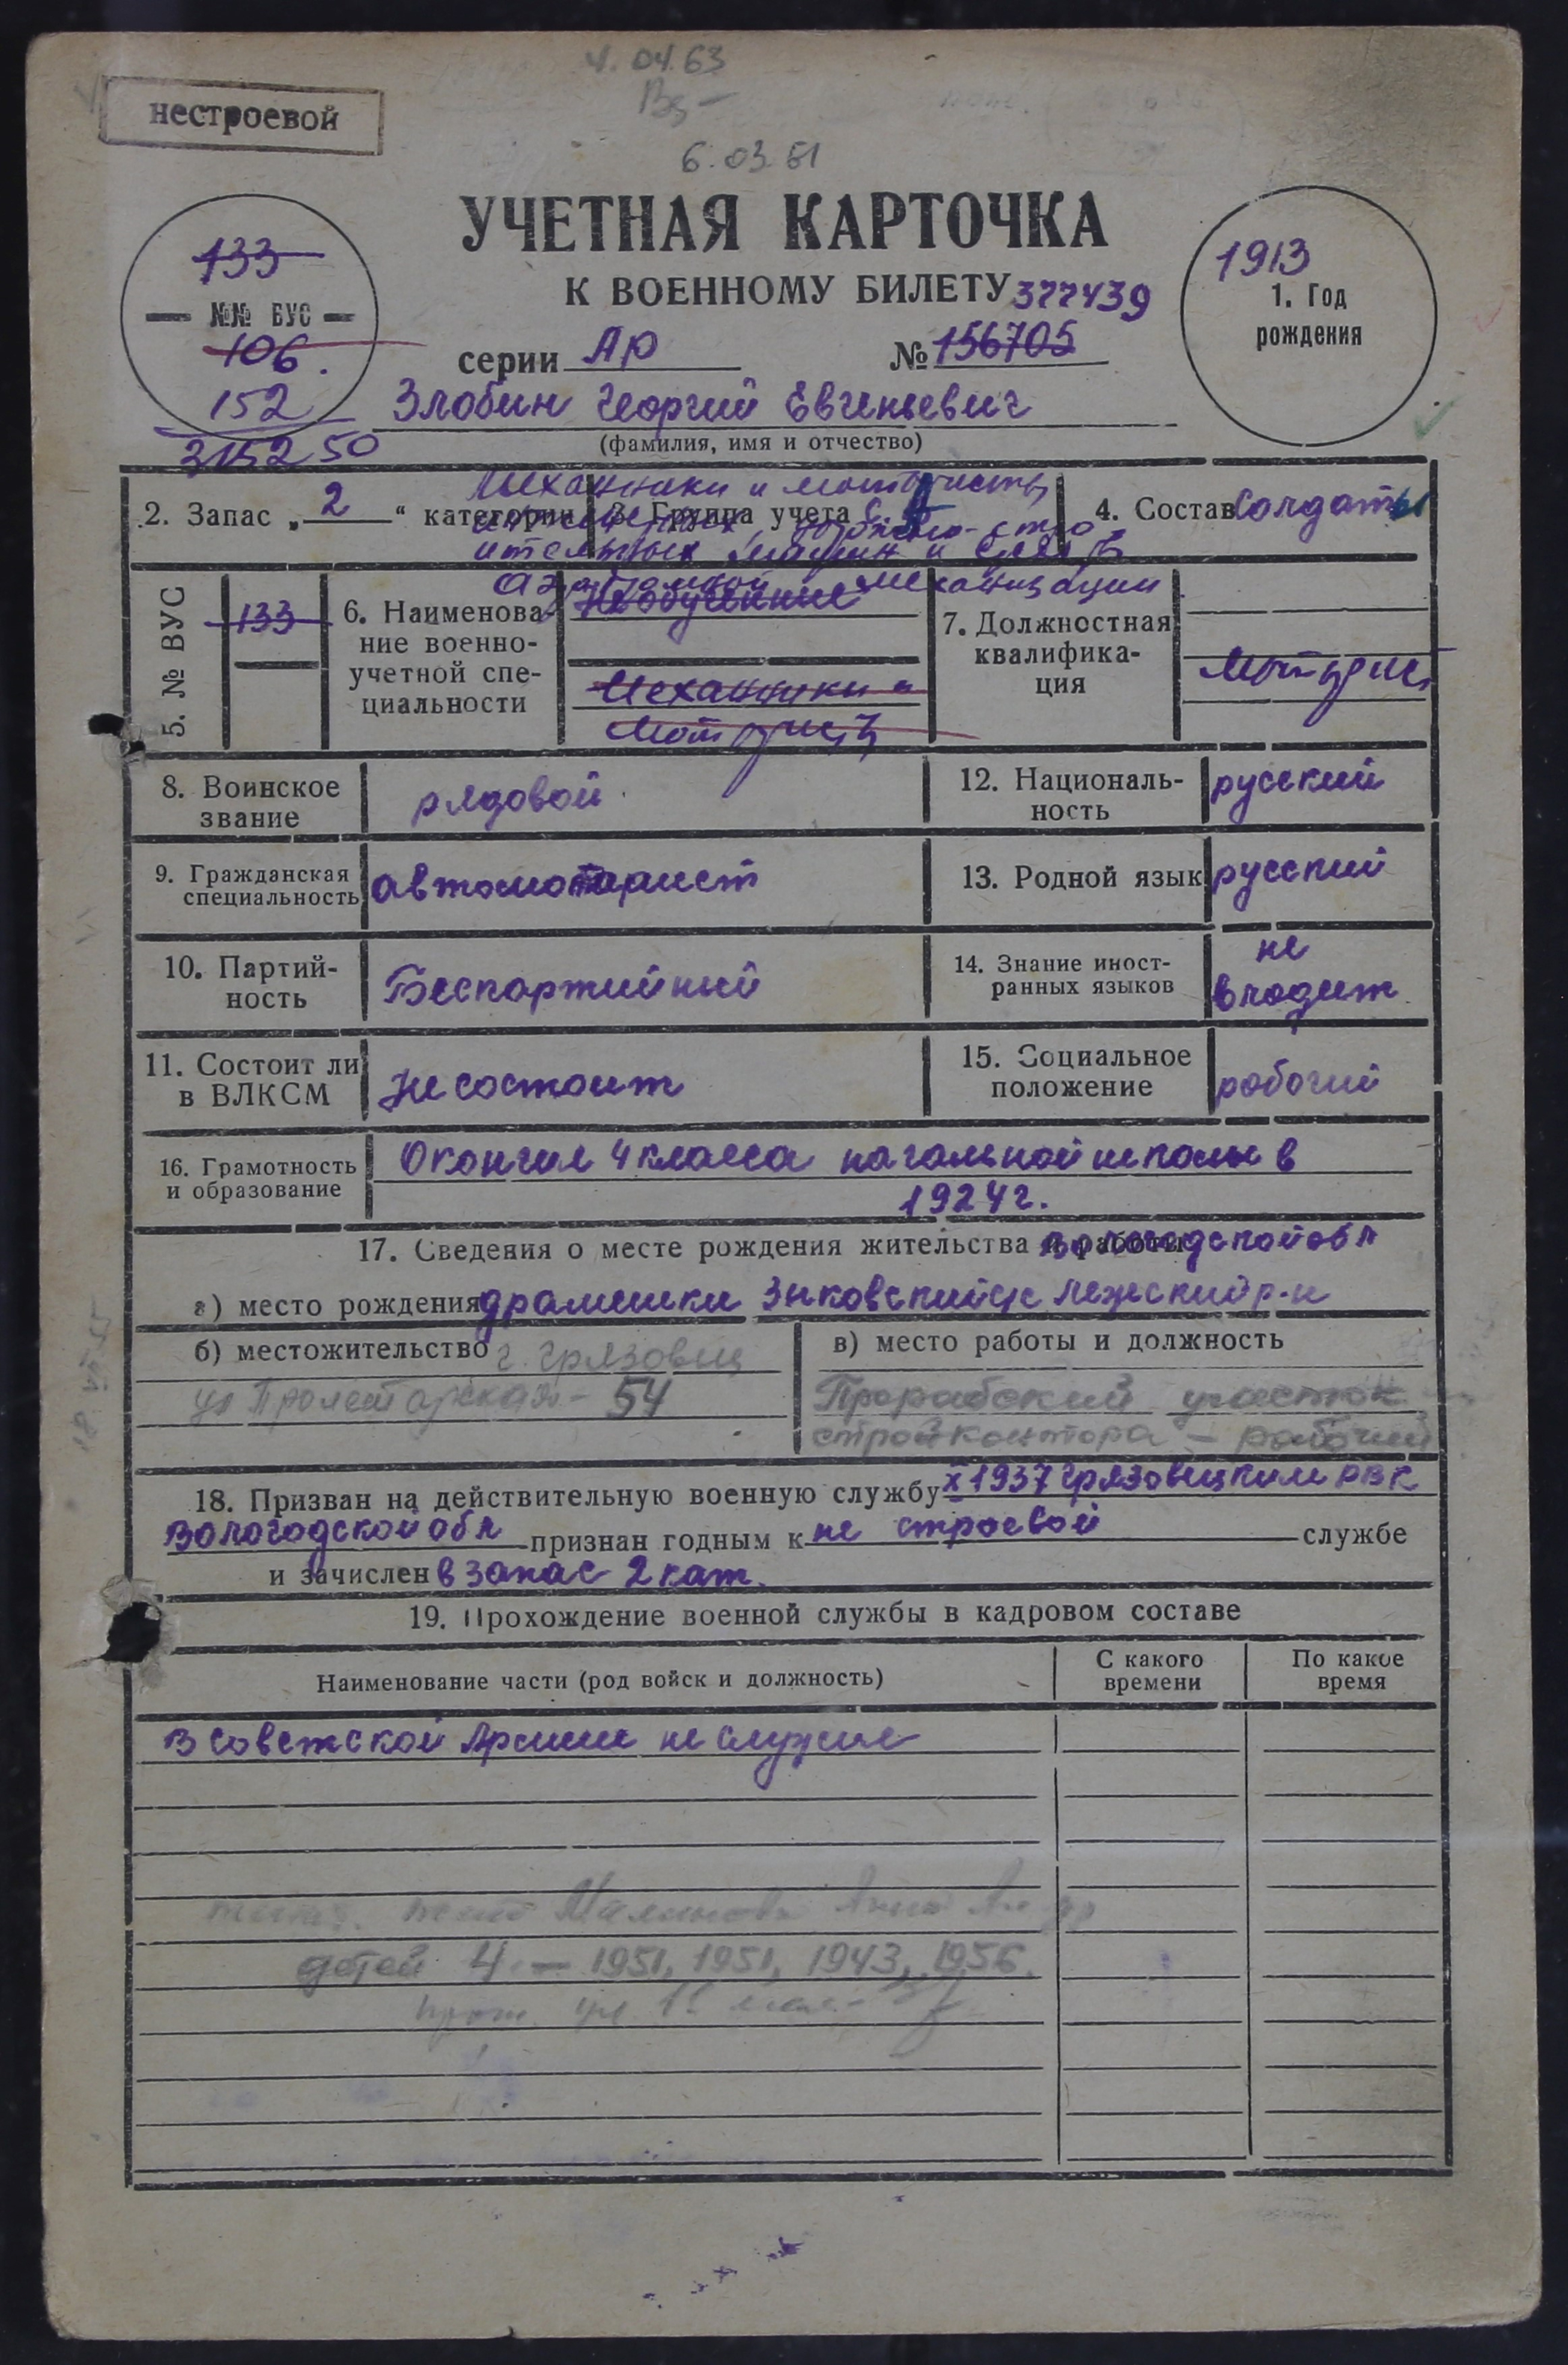 4.04.63
нестроевой
6.03.61
УЧЕТНАЯ КАРТОЧКА
К ВОЕННОМУ БИЛЕТУ 377439
133
№№ ВУС
106.
152
315250
1913
1. Год
рождения
серии АР № 156705
Злобин Георгий Евгеньевич
(фамилия, имя и отчество)
Механики и мотористы
2. Запас „2“ категории 3. Группа учета СА 4. Состав Солдаты
дорожно-стро
ительных машин и
аэродромной механизации
5. № ВУС 133
6. Наименова-
ние военно-
учетной спе-
циальности
Необученные
Механики и
Мотористы
7. Должностная
квалифика-
ция
Моторист
8. Воинское
звание
рядовой
12. Националь-
ность
русский
9. Гражданская
специальность
автомоторист
13. Родной язык русский
10. Партий-
ность
Беспартийный
14. Знание иност-
ранных языков
не
владеет
11. Состоит ли
в ВЛКСМ
не состоит
15. Социальное
положение
рабочий
16. Грамотность
и образование
Окончил 4 класса начальной школы в
1924 г.
17. Сведения о месте рождения жительства и работы Вологодской обл
а) место рождения драмешки Зыковский с/с Лежский р-н
б) местожительство г. Грязовец
ул Пролетарская - 54
в) место работы и должность
Прорабский участок
стройконтора - рабочий
18. Призван на действительную военную службу X 1937 Грязовецким РВК
Вологодской обл признан годным к не строевой службе
и зачислен в запас 2 кат.
19. Прохождение военной службы в кадровом составе
Наименование части (род войск и должность)
С какого
времени
По какое
время
В Советской Армии не служил
детей 4 - 1951, 1951, 1943, 1956.